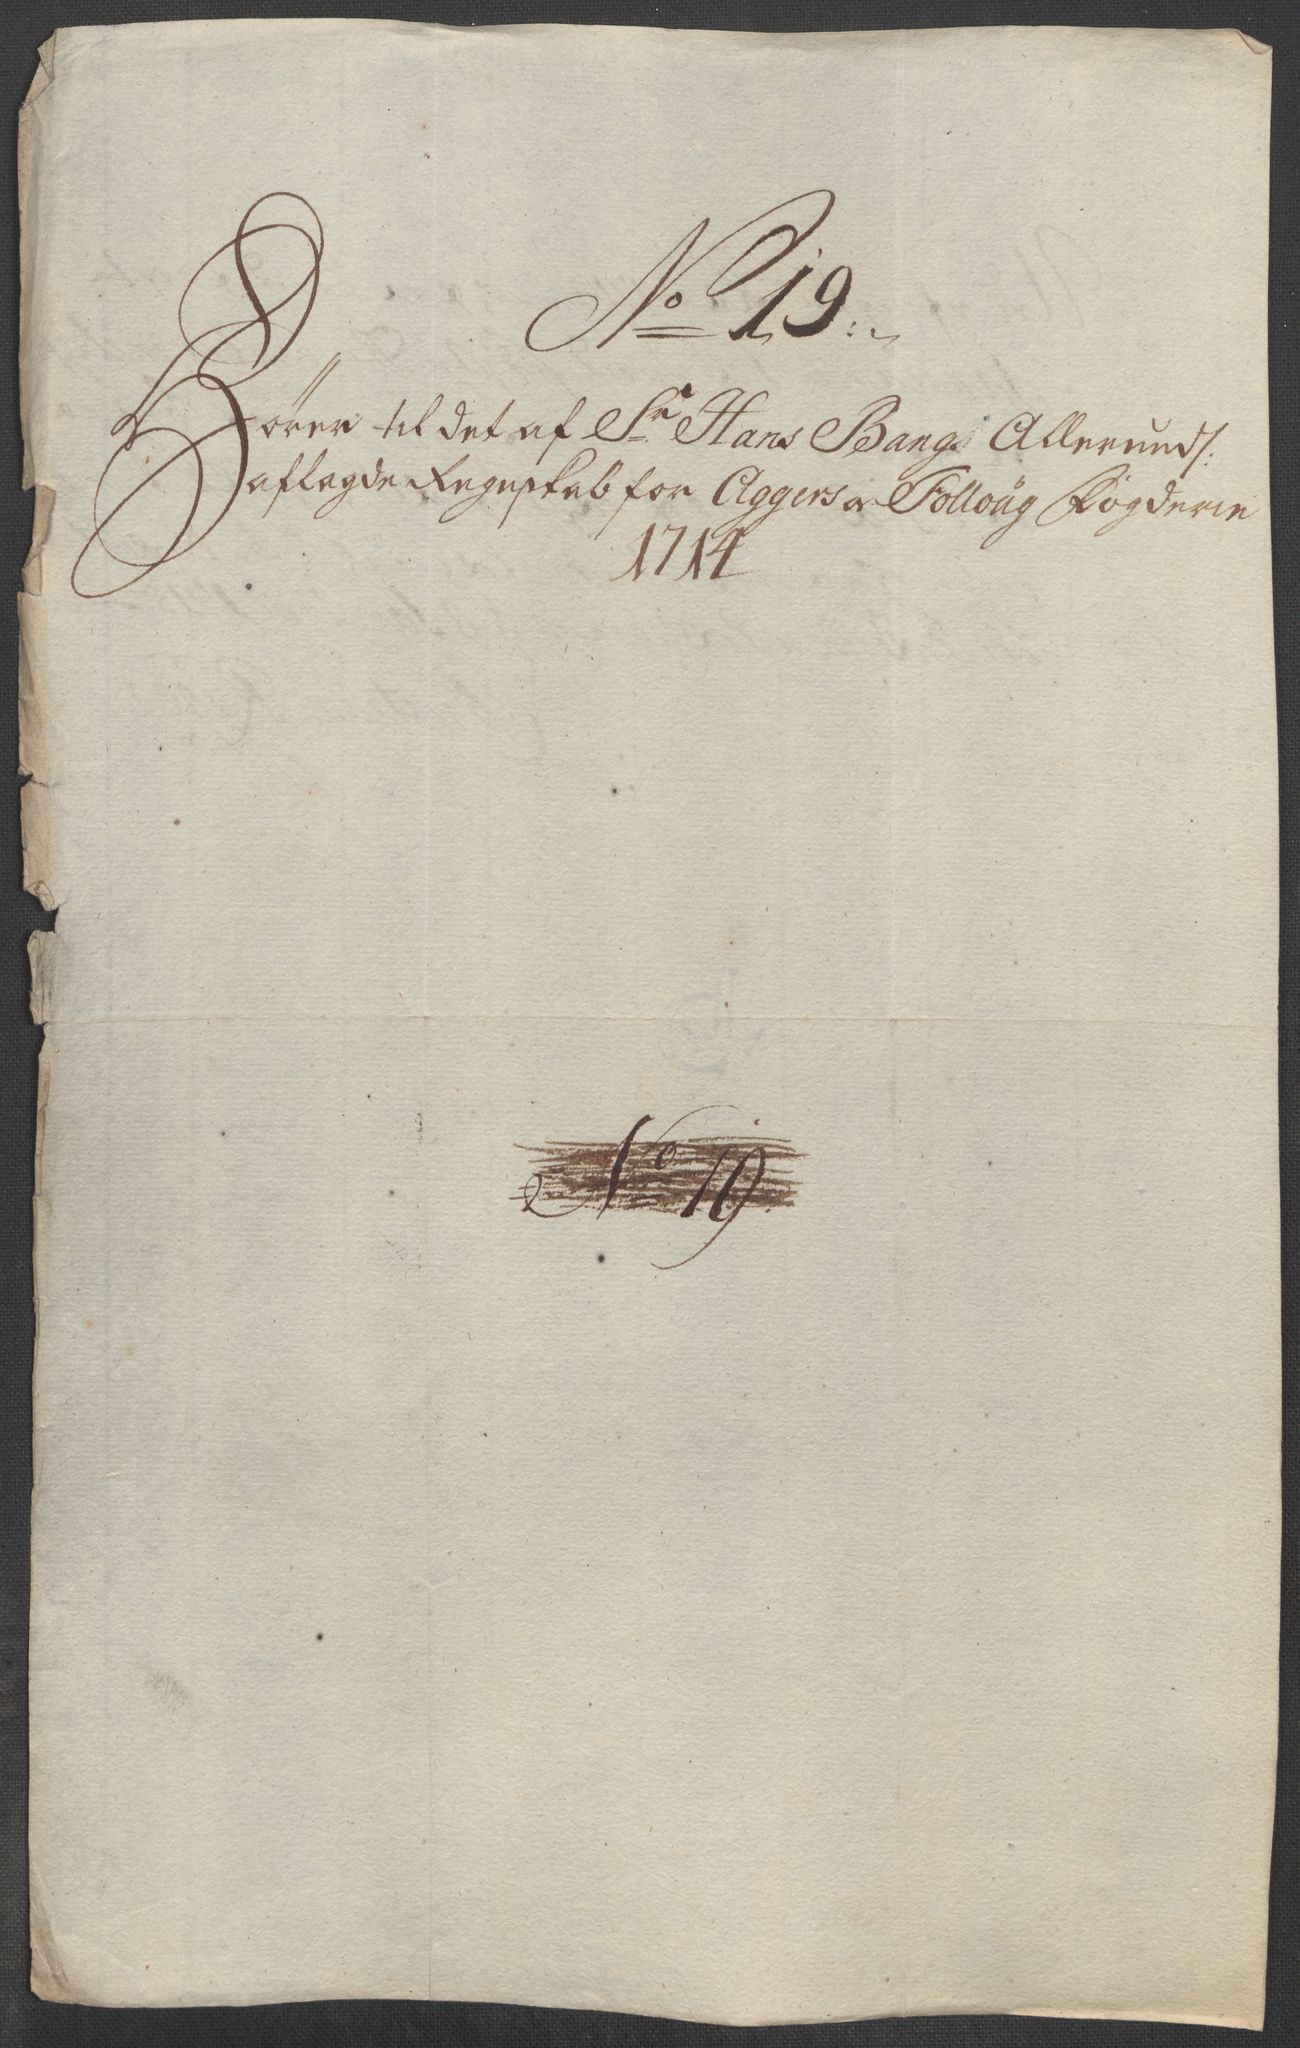 No 19.
Hører til det af Sr Hans Bangs Allerunds:
aflagde Regnskab for Aggers og Folloug Fogderie
1714
No 19.